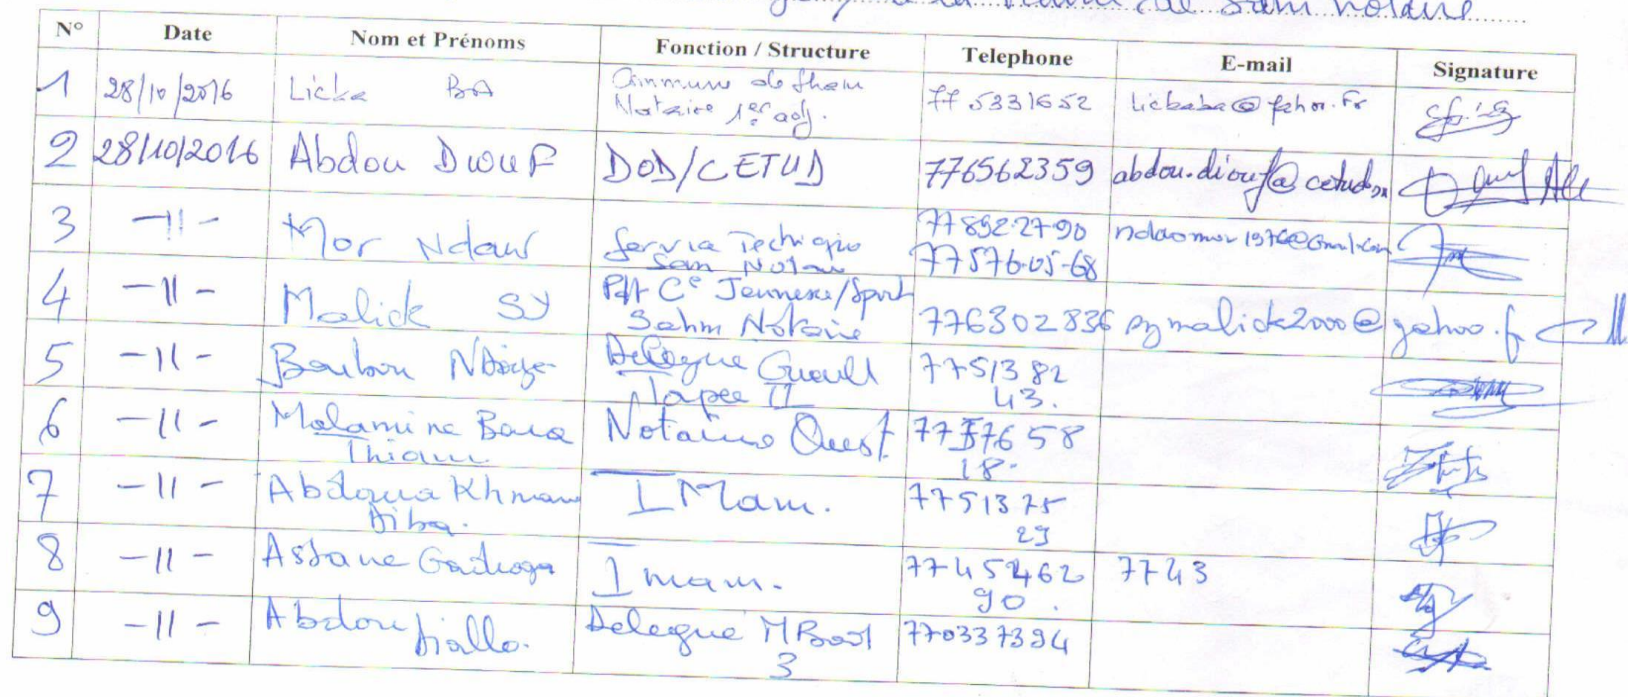 la de Sam Notaire
N° Date Nom et Prénoms Fonction / Structure Telephone E-mail Signature
1 28/10/2016 Licka BA Commune de Sham Notaire 1er adj. 77 5331652 lickaba@yahoo.fr
2 28/10/2016 Abdou DIOUF DOD/CETUD 776562359 abdou.diouf@cetud.sn
3 -11- Mor Ndaw Service Technique Sam Notaire 77892-27-90 77576-05-68 ndaomor1976@Gmail.com
4 -11- Malick SY Pdt Ce Jeunesse/Sport Sahm Notaire 776302836 symalick2000@yahoo.fr
5 -11- Boubou Ndiaye Delegue Gueule Tapee II 7751382 43.
6 -11- Malamine Bara Thiam Notaire Ouest 7757658 18.
7 -11- Diba. IMam. 7751375 29
8 -11- Assane Imam. 7745462 90. 7743
9 -11- Abdou Diallo. Delegue 3 770337394